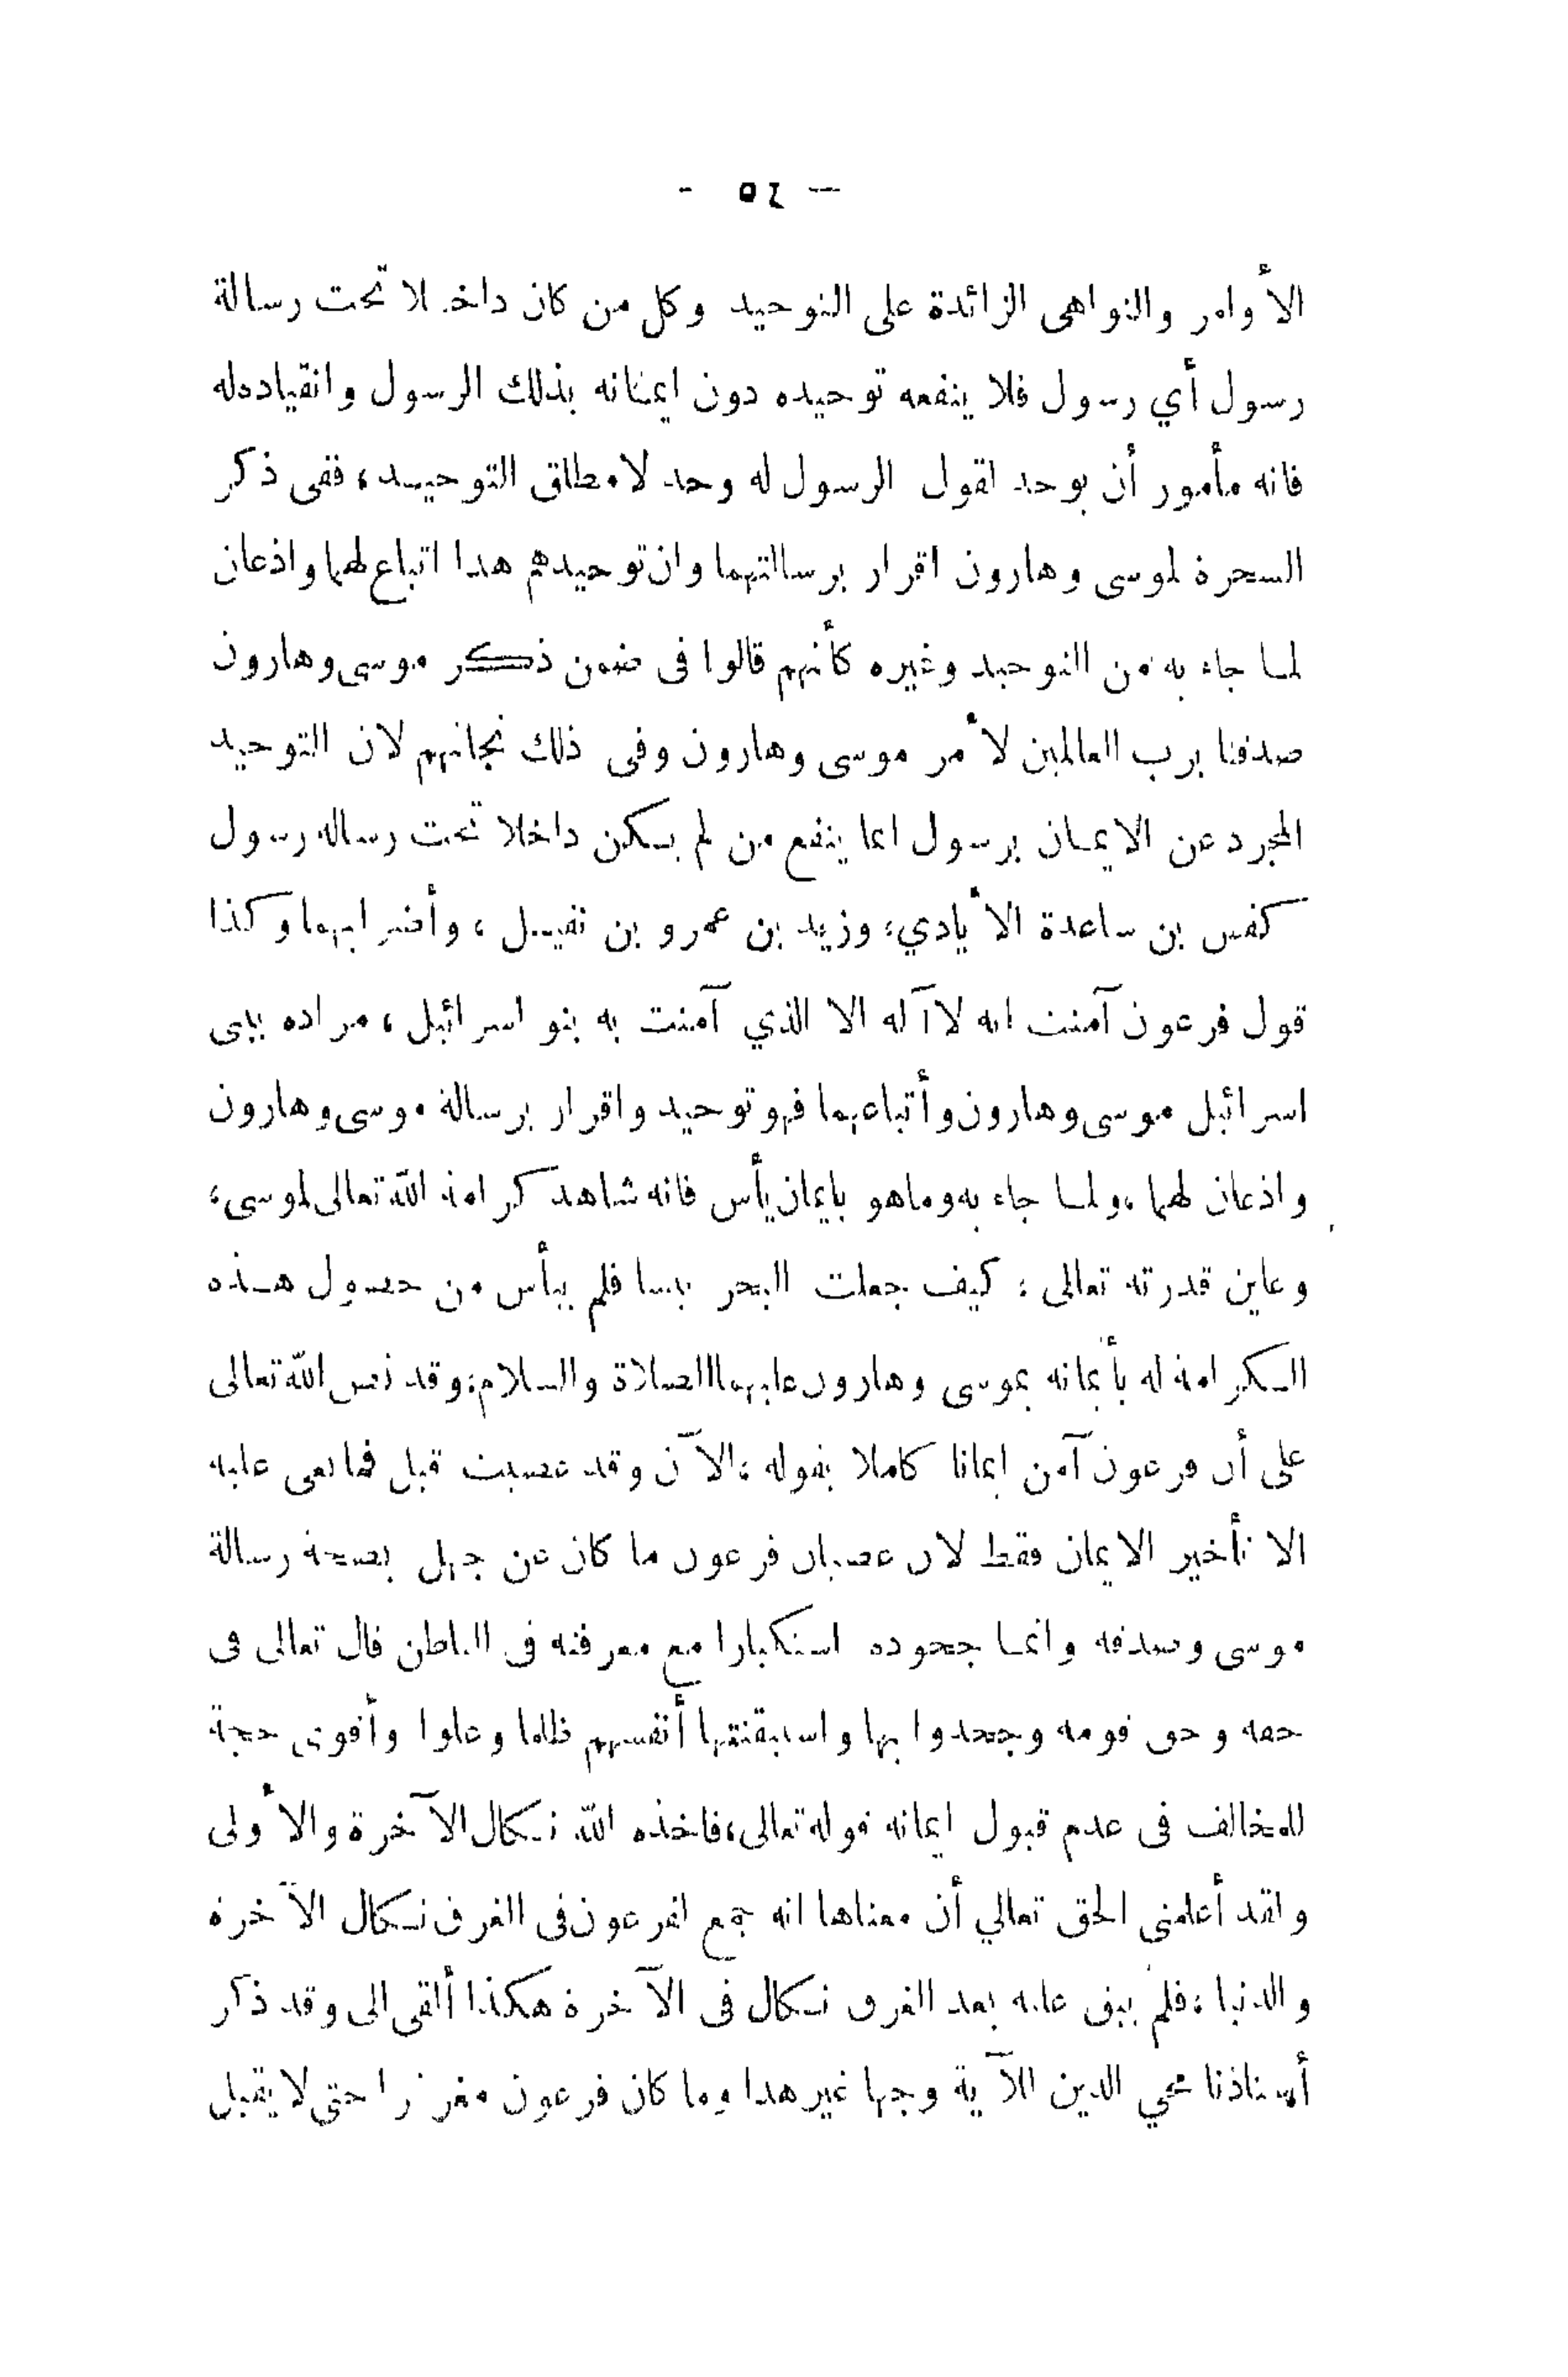 — ٥٤ -
الأوامر والنواهى الزائدة على التوحيد وكل من كان داخلا تحت رسالة
رسول أي رسول فلا ينفعه توحيده دون ايمانه بذلك الرسول وانقياده له
فانه مأمور أن يوحد لقول الرسول له وحد لامطلق التوحيد، ففى ذكر
السحرة لموسى وهارون اقرار برسالتهما وان توحيدهم هذا اتباع لهما واذعان
لما جاء به من التوحيد وغيره كأنهم قالوا فى ضمن ذكر موسى وهارون
صدقنا برب العالمين لأمر موسى وهارون وفى ذلك نجاتهم لان التوحيد
المجرد عن الايمان برسول انما ينفع من لم يكن داخلا تحت رساله رسول
كقس بن ساعدة الأيادي، وزيد بن عمرو بن نفيل، وأضرابهما وكذا
قول فرعون آمنت انه لاآله الا الذي آمنت به بنو اسرائيل، مراده ببنى
اسرائيل موسى وهارون وأتباعهما فهو توحيد واقرار برسالة موسى وهارون
واذعان لهما، ولما جاء به وماهو بايمان يأس فانه شاهد كرامة الله تعالى لموسى،
وعاين قدرته تعالى، كيف جعلت البحر يبسا فلم ييأس من حصول هذه
الكرامة له بأيمانه بموسى وهارون عليهما الصلاة والسلام، وقد نص الله تعالى
على أن فرعون آمن ايمانا كاملا بقوله، الآن وقد عصيت قبل فما نعى عليه
الا تأخير الايمان فقط لان عصيان فرعون ما كان عن جهل بصحة رسالة
موسى وصدقه وانما جحوده استكبارا مع معرفته فى الباطن قال تعالى فى
حقه وحق قومه وجحدوا بها واستيقنتها أنفسهم ظلما وعلوا وأقوى حجة
للمخالف فى عدم قبول ايمانه قوله تعالى، فاخذه الله نكال الآخرة والأولى
ولقد أعلمنى الحق تعالي أن معناها انه جمع لفرعون فى الغرق نكال الآخرة
والدنيا، فلم يبق عليه بعد الغرق نكال فى الآخرة هكذا ألقى الى وقد ذكر
أستاذنا محي الدين للآية وجها غير هذا وما كان فرعون مغرغرا حتى لا يقبل